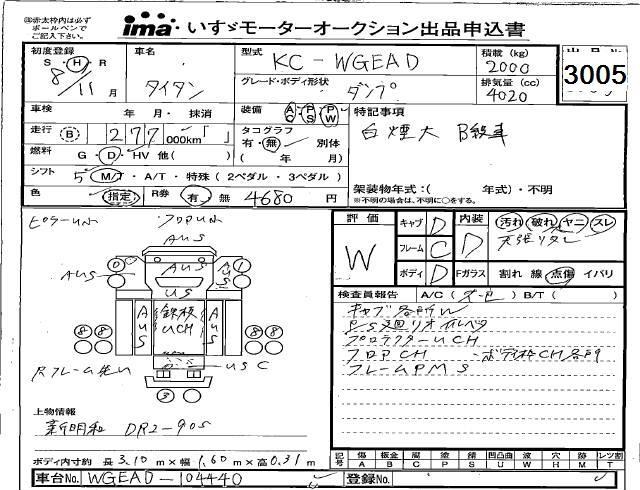 ⑩赤太枠内は必ず
ボールペンで
ご記入下さい。
ima いすゞモーターオークション出品申込書
初度登録
S・H・R
8/11月
車名
タイタン
型式
KC-WGEAD
グレード・ボディ形状
ダンプ
積載(kg)
2000
排気量(cc)
4020
3005
車検 年・月・抹消
装備 AC PS PW
特記事項
白煙大 B級車
走行 B 277 000km
タコグラフ
有・無 別体
( 年 月)
燃料 G・D・HV 他( )
シフト 5 M/T・A/T・特殊(2ペダル・3ペダル)
架装物年式:( 年式)・不明
※不明の場合は、不明に○をする。
色 (指定) R券 有 無 4680 円
ピラーUW フロアUW
AUS
AUS
AUS
AUS
US
AUS
鉄板
UCH
AUS
8 8
8 8
USC
3
上物情報
新明和 DR2-90S
ボディ内寸約 長 3.10 m×幅 1.60 m×高 0.31 m
車台No. WGEAD-104440
登録No.
評価
W
キャブ D
フレーム C
ボディ D
内装 D
汚れ 破れ ヤニ スレ
天張リタレ
Fガラス 割れ 線 点傷 イバリ
検査員報告 A/C( ) B/T( )
キャブ各所W
プロテクターUCH
フロアCH ・ボディ枠CH各所
フレームPMS
記号 傷 板金 腐 塗 錆 凹凸曲 波 穴 跡 レンズ割
A B C P S U W H M T